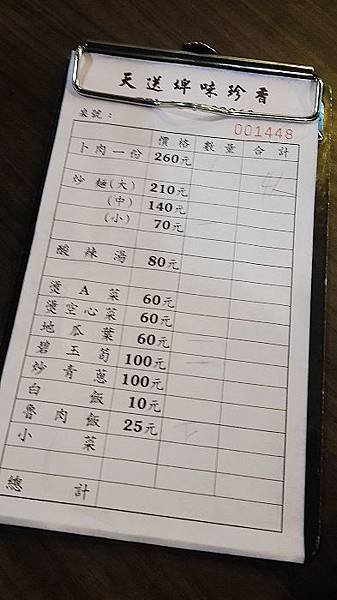 天送埤味珍香
桌號：
001448
價格 數量 合計
卜肉一份 260元
炒麵(大) 210元
(中) 140元
(小) 70元
酸辣湯 80元
燙A菜 60元
燙空心菜 60元
地瓜葉 60元
碧玉筍 100元
炒青蔥 100元
白飯 10元
魯肉飯 25元
小菜
總計